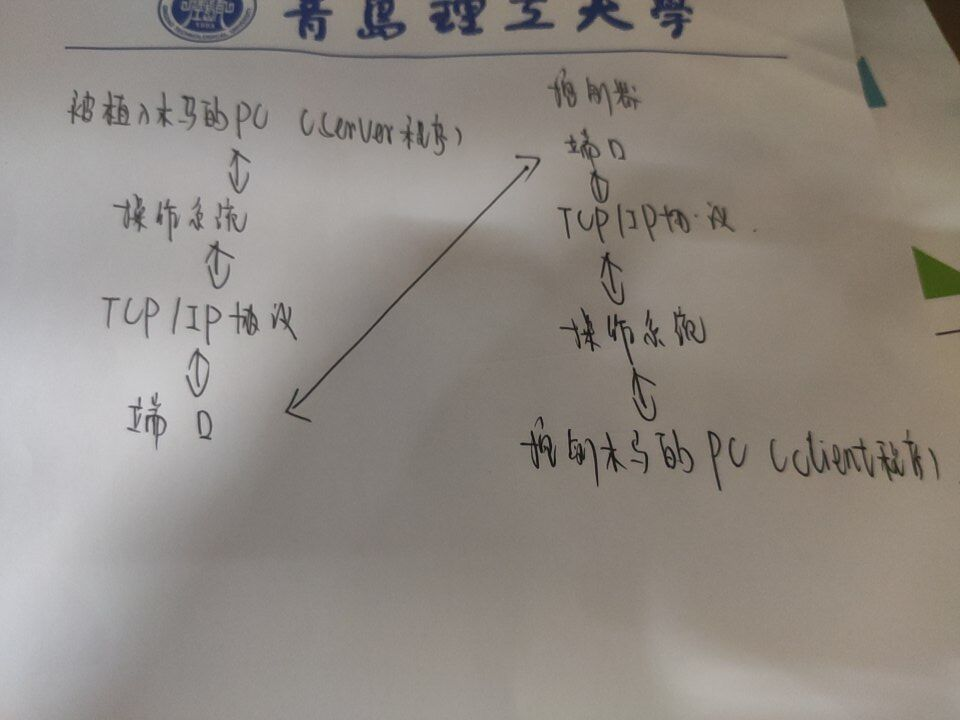 青岛理工大學
被植入木马的PC (Server程序)
操作系统
TCP/IP协议
端口
控制器
端口
TCP/IP协议
操作系统
控制木马的PC (Client程序)